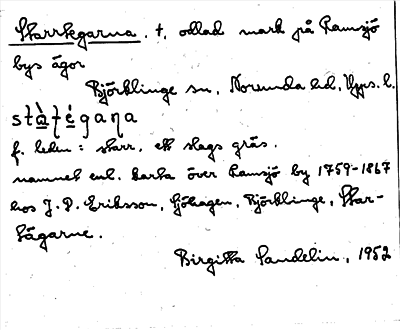 Starrtegarna, t, odlad mark på Ramsjö
bys ägor
Björklinge sn, Norunda hd, Upps. l.
stàtégana
f. leden: starr, ett slags gräs.
namnet enl. karta över Ramsjö by 1759-1867
hos J. P. Eriksson, Sjöhagen, Björklinge, Star-
tägarne.
Birgitta Sandelin, 1952